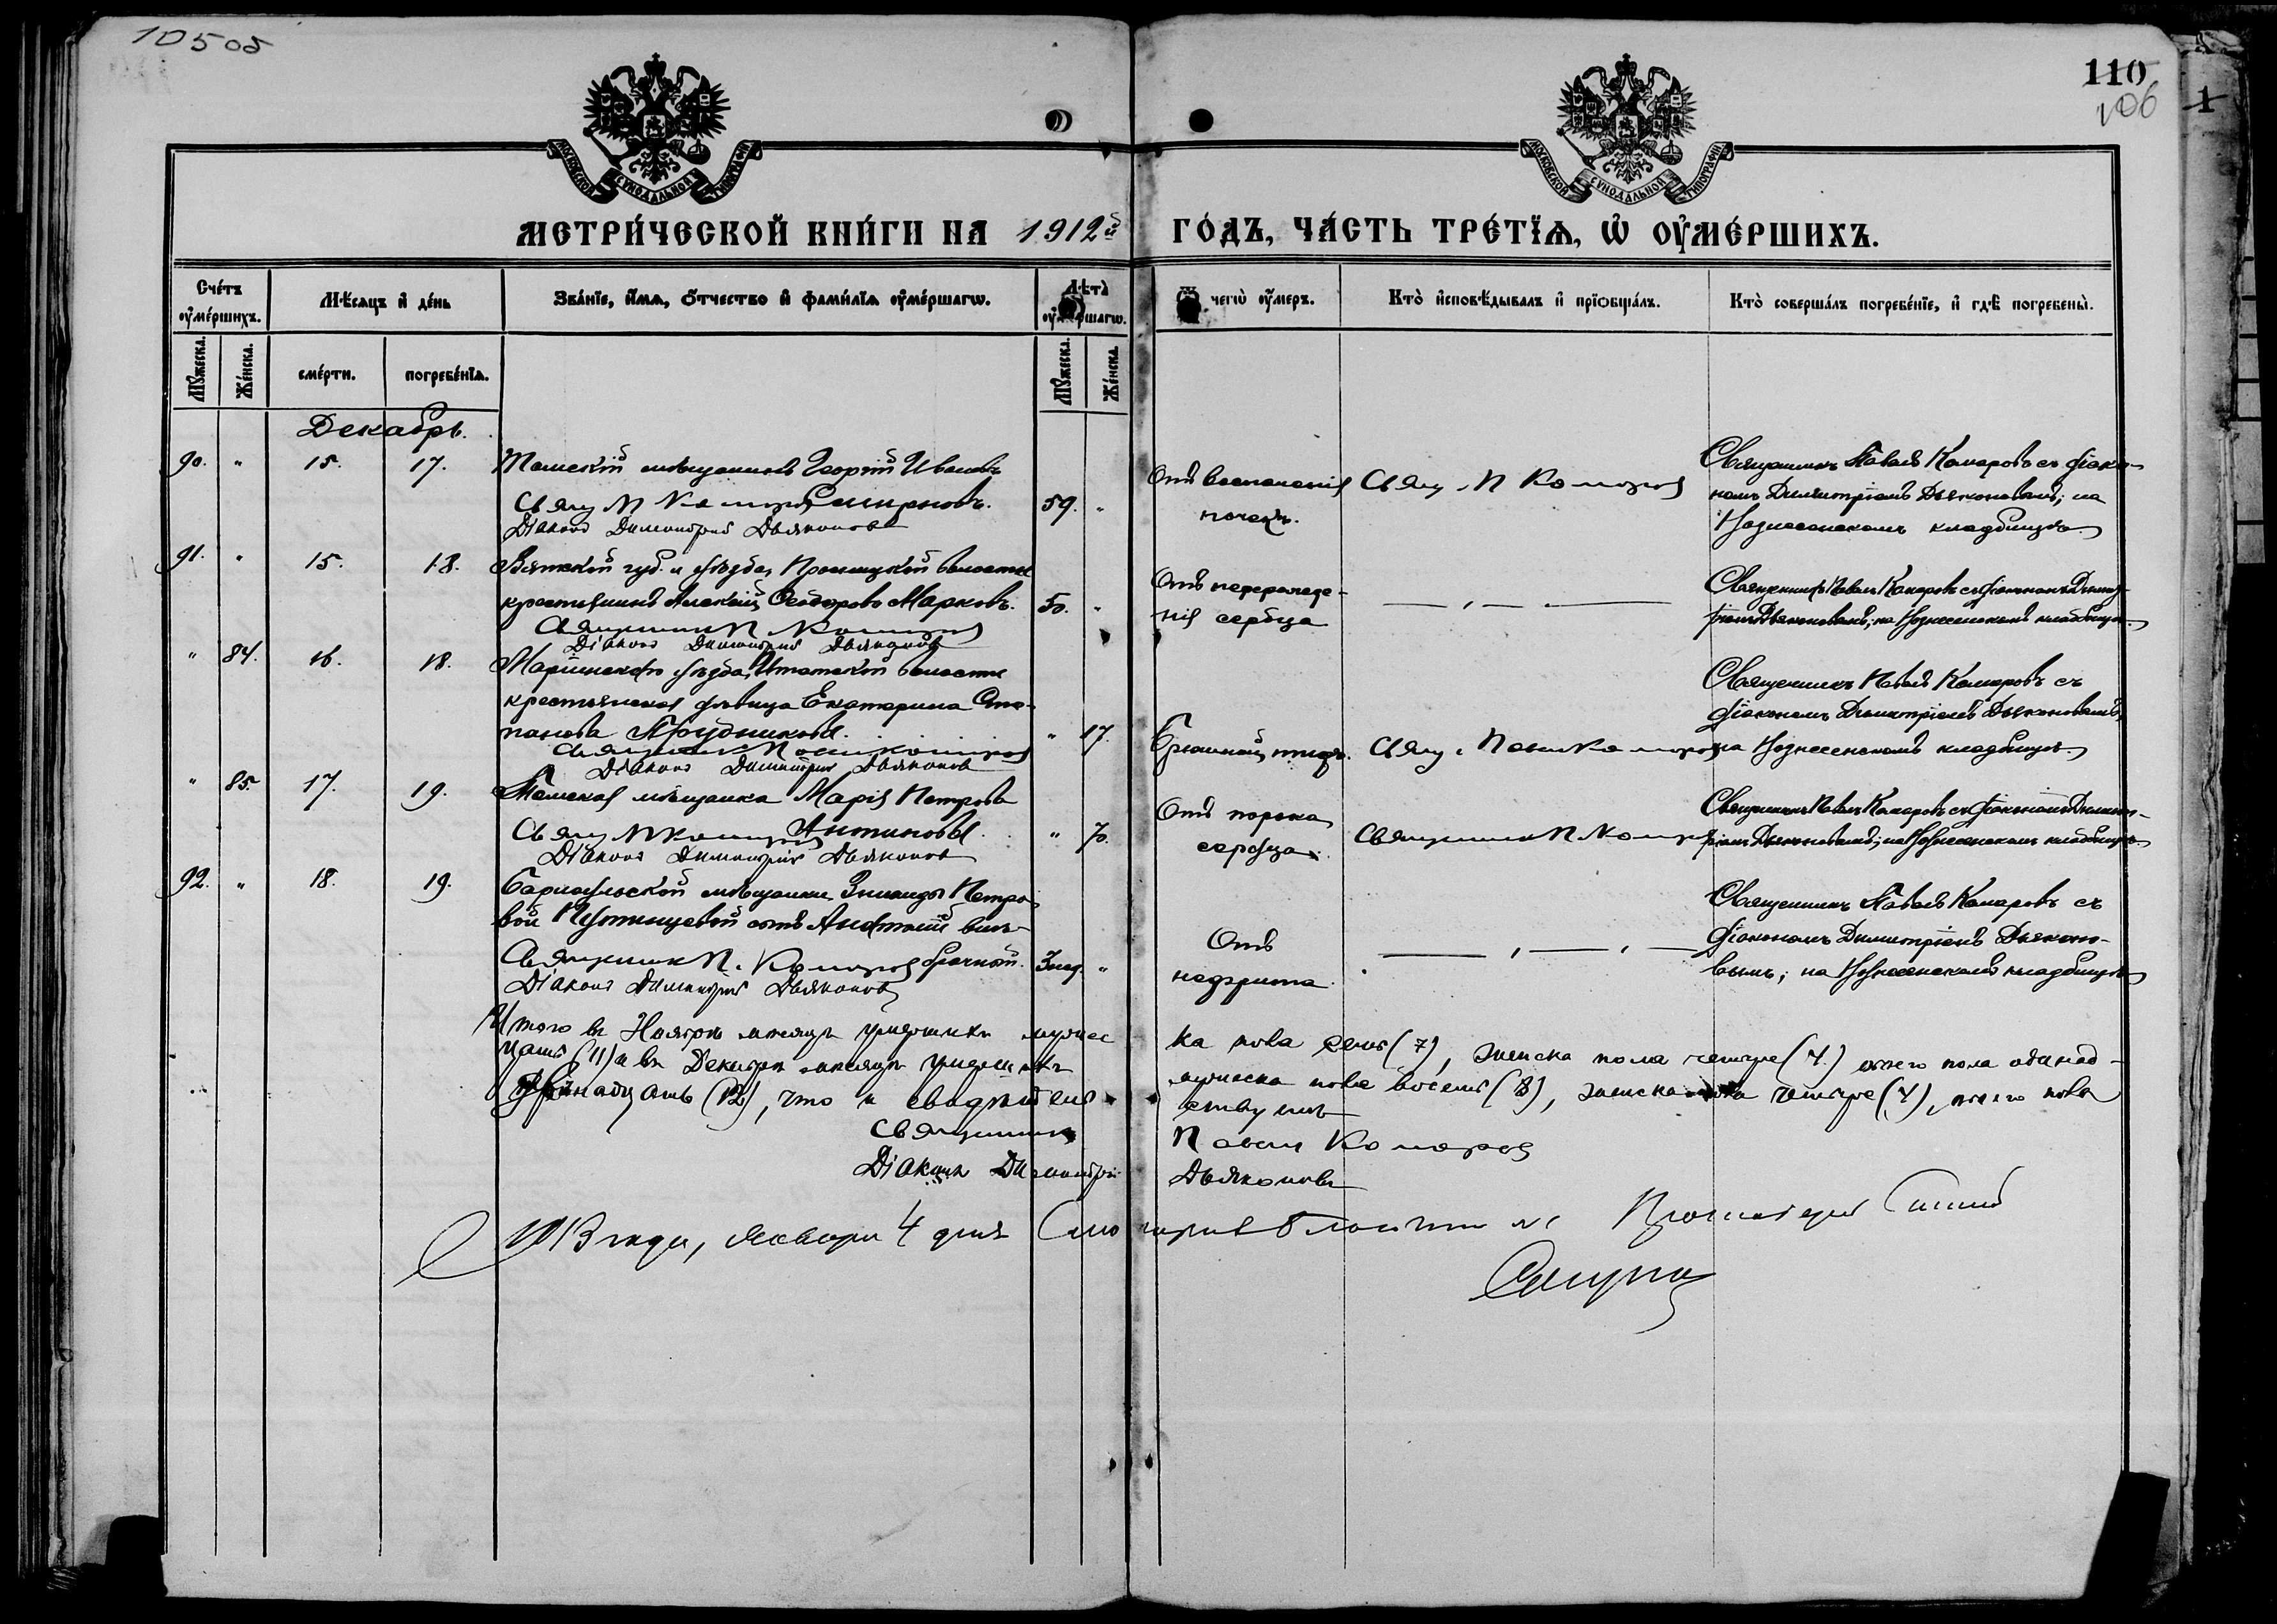 105 об
110
106
1
МОСКОВСКОЙ СѴНОДАЛЬНОЙ ТИПОГРАФІИ
МОСКОВСКОЙ СѴНОДАЛЬНОЙ ТИПОГРАФІИ
МЕТРИ́ЧЕСКОЙ КНИ́ГИ НА 1912й ГО́ДЪ, ЧА́СТЬ ТРЕ́ТЇѦ, Ѡ҆ ОУ҆МЕ́РШИХЪ.
Сче́тъ оу҆ме́ршихъ.
Мѣ́сяцъ и҆ де́нь
Зва́нїе, и҆́мѧ, ѻ҆́тчество и҆ фами́лїѧ оу҆ме́ршагѡ.
Лѣта̀ оу҆ме́ршагѡ.
Ѿ чегѡ̀ оу҆́меръ.
Кто̀ и҆сповѣ́дывалъ и҆ прїѡбща́лъ.
Кто̀ соверша́лъ погребе́нїе, и҆ гдѣ̀ погребены̀.
Мꙋ́жеска.
Же́нска.
сме́рти.
погребе́нїѧ.
Мꙋ́жеска.
Же́нска.
Декабрь.
90. " 15. 17. Томскій мѣщанинъ Георгій Ивановъ
Смирновъ. 59. "
Свящ П Комаровъ
Діаконъ Димитрій Дьяконовъ
Отъ воспаленія
почекъ.
Свящ. П Комаровъ
Священникъ Павелъ Комаровъ съ діако-
номъ Димитріемъ Дьяконовымъ; на
Вознесенскомъ кладбищѣ.
91. " 15. 18. Вятской губ. и уѣзда, волости
крестьянинъ Алексій Ѳеодоровъ Марковъ. 50. "
Священник П. Комаровъ
Діаконъ Димитрій Дьяконовъ
Отъ перерожде-
нія сердца
— " — " —
Священникъ Павелъ Комаровъ съ діакономъ Димит-
ріемъ Дьяконовымъ; на Вознесенскомъ кладбищѣ.
" 84. 16. 18. Маріинскаго уѣзда, Итатской волости
крестьянская дѣвица Екатерина Сте-
панова Прудникова. " 17.
Священник П Комаров
Діаконъ Димитрій Дьяконовъ
Брюшной тифъ.
Свящ. Павел Комаров
Священникъ Павелъ Комаровъ съ
діакономъ Димитріемъ Дьяконовымъ,
на Вознесенскомъ кладбищѣ.
" 85. 17. 19. Томская мѣщанка Марія Петрова
Антипова. " 70.
Свящ П Комаров
Діаконъ Димитрій Дьяконов
Отъ порока
сердца.
Священник П. Комаров
Священникъ Павелъ Комаровъ съ діакономъ Димит-
ріемъ Дьяконовымъ; на Вознесенскомъ кладбищѣ
92. " 18. 19. Барнаульской мѣщанки Зинаиды Петро-
вой сынъ Анатолій внѣ-
брачный. 3 нед. "
Священник П. Комаров
Діаконъ Димитрій Дьяконовъ
Отъ
нефрита.
— " — " —
Священникъ Павелъ Комаровъ съ
діакономъ Димитріемъ Дьяконо-
вымъ; на Вознесенскомъ кладбищѣ
Итого въ Ноябрѣ мѣсяцѣ умершихъ мужеска пола семь (7), женска пола четыре (4) обоего пола одинад-
цать (11) а въ Декабрѣ мѣсяцѣ умершихъ мужеска пола восемь (8), женска пола четыре (4), обоего пола
двѣнадцать (12), что и свидѣтельствуемъ
Священник Павел Комаров
Діаконъ Димитрій Дьяконовъ
1913 года, января 4 дня Смотрил Благочинный Протоіерей